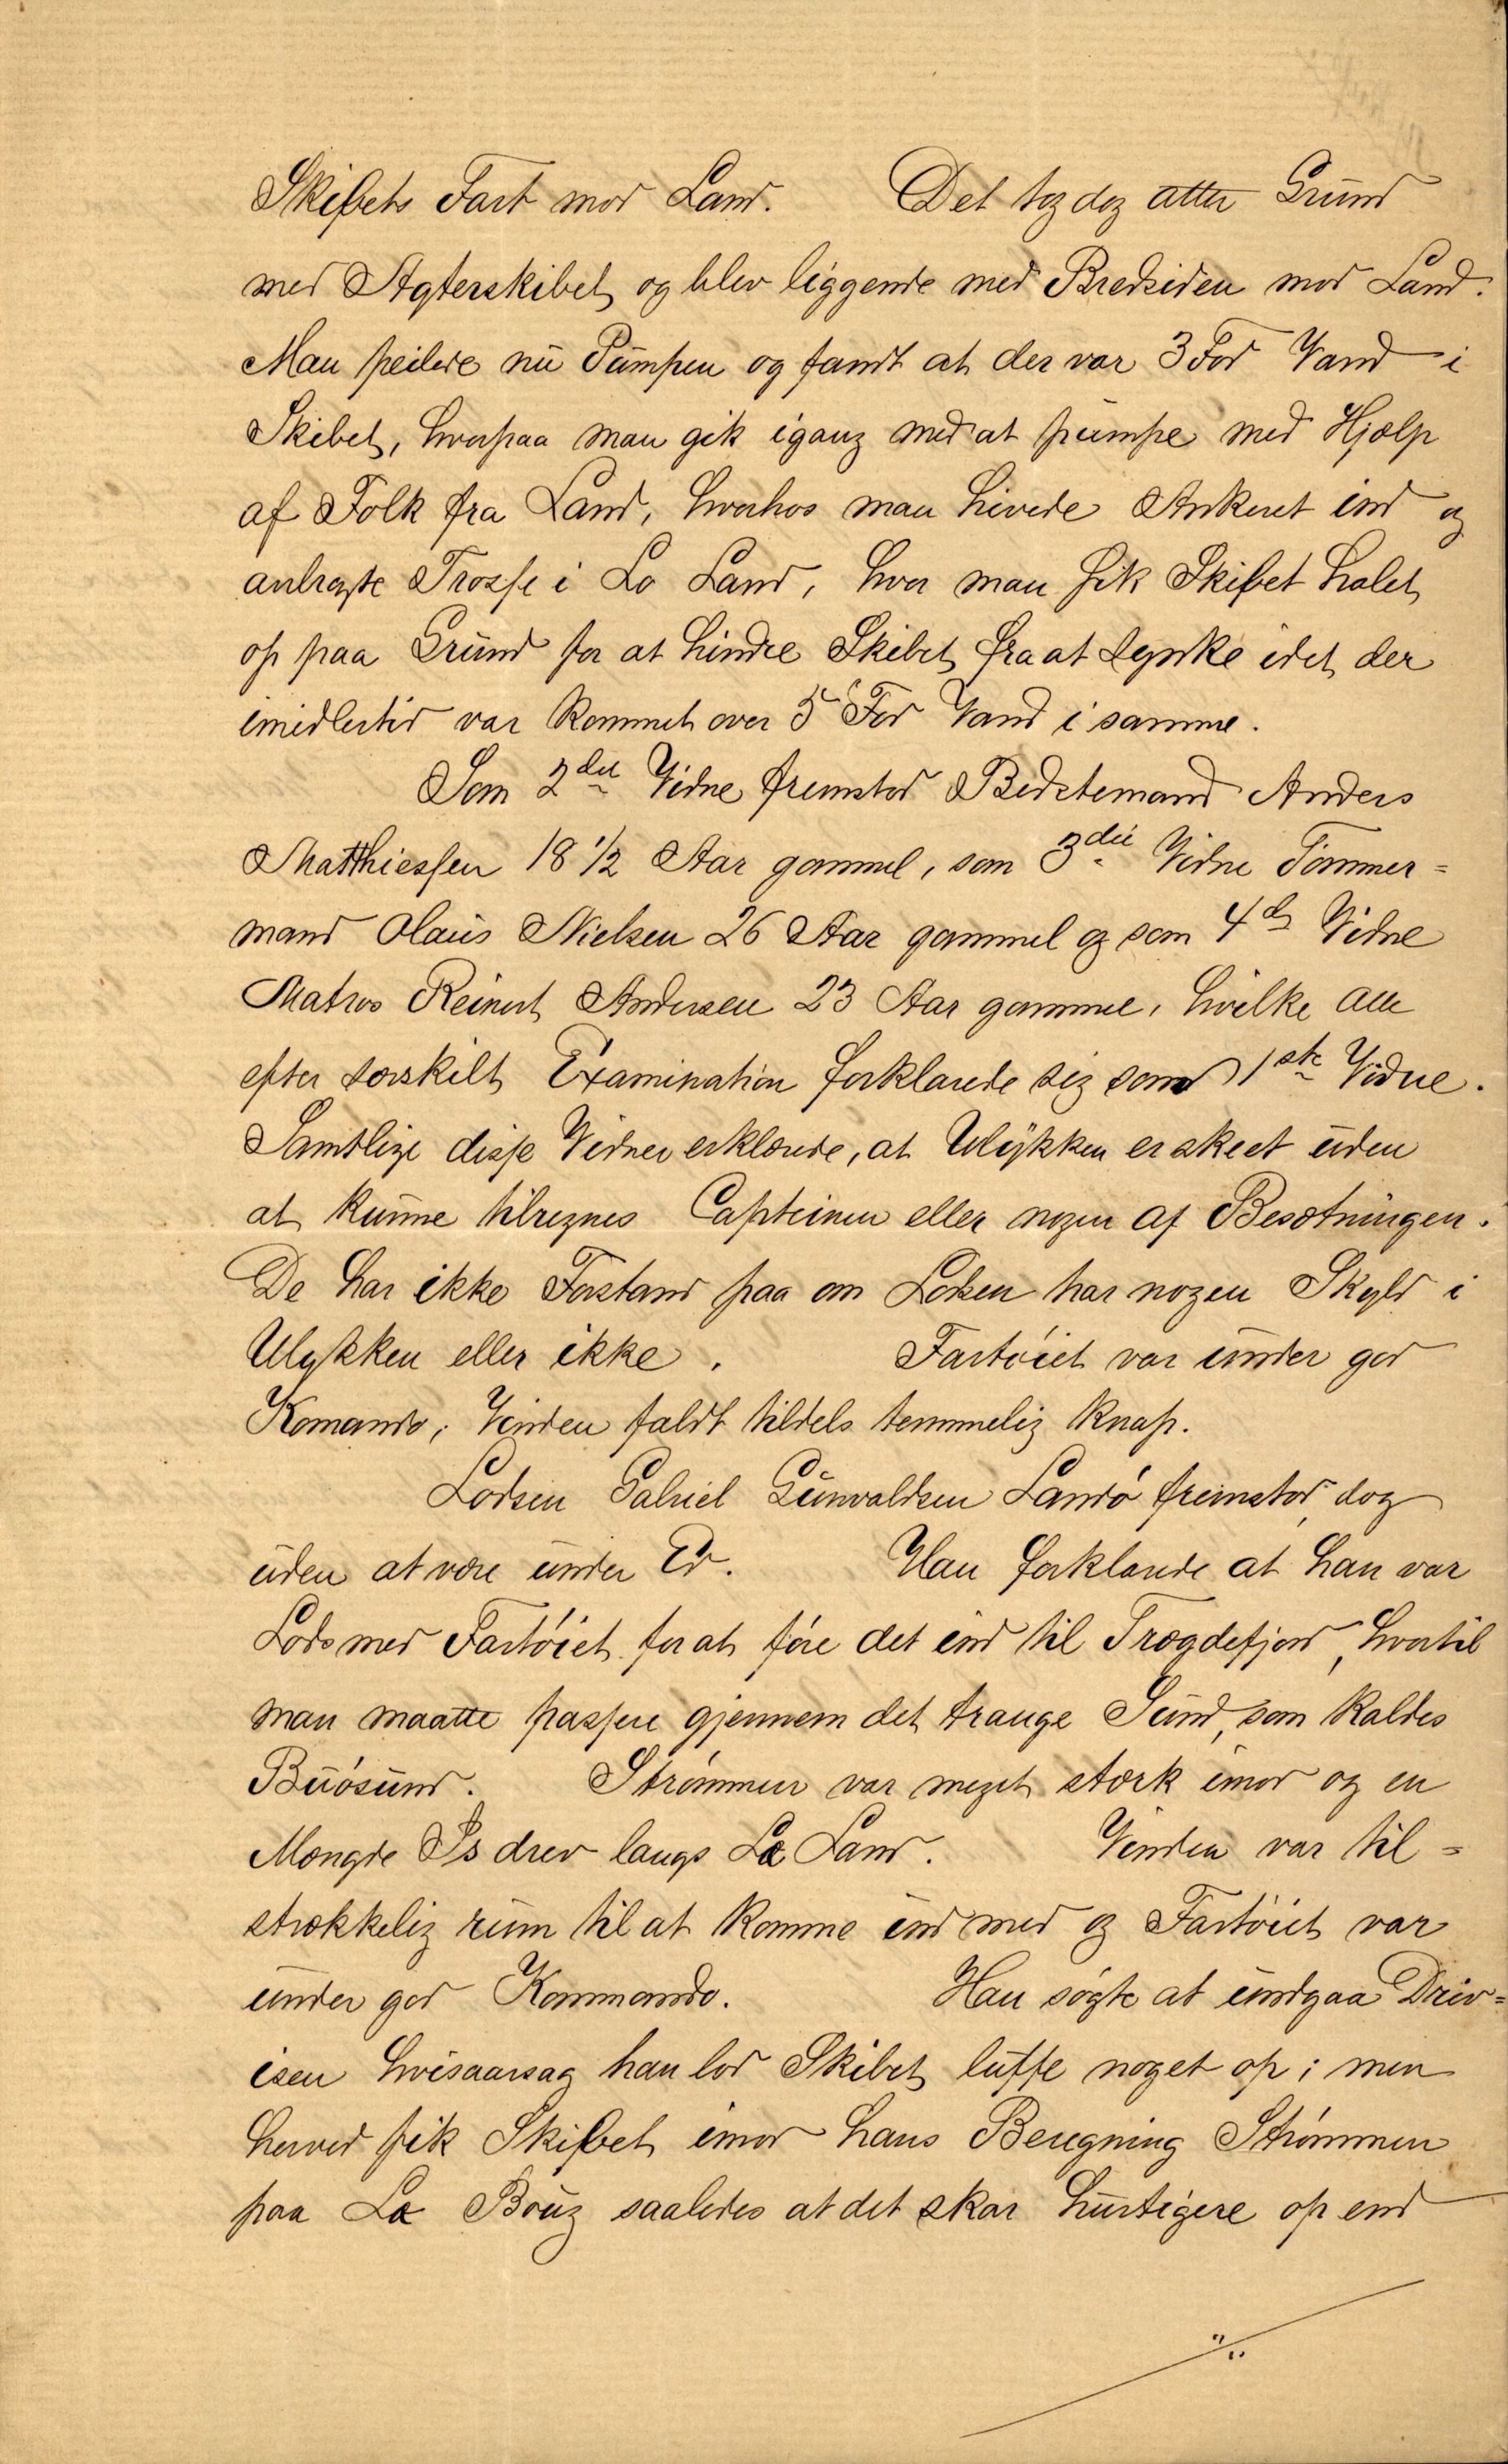 Skibets Fart mod Land. Det tog dog atter Grund
med Agterskibet og blev liggende med Bredsiden mod Land.
Man peilede nu Pumpen og fandt at der var 3 Fod Vand i
Skibet, hvorpaa man gik igang med at pumpe med Hjælp
af Folk fra Land, hvorhos man hivede Ankeret ind og
anbragte Trosse i Læ Land, hvor man fik Skibet halet
op paa Grund for at hindre Skibet fra at synke idet der
imidlertid var kommet over 5 Fod Vand i samme.
Som 2det Vidne fremstod Bedstemand Anders
Matthiessen 18 1/2 Aar gammel, som 3die Vidne Tømmer=
mand Olaus Nielsen 26 Aar gammel og som 4de Vidne
Matros Reinert Andersen 23 Aar gammel, hvilke alle
efter særskilt Examination forklarede sig som 1ste Vidne.
Samtlige disse Vidner erklærede, at Ulykken er skeet uden
at kunne tilregnes Capteinen eller nogen af Besætningen.
De har ikke Forstand paa om Lodsen har nogen Skyld i
Ulykken eller ikke. Fartøiet var under god
Komando; Vinden faldt tildels temmelig knap.
Lodsen Gabriel Gunvaldsen Landø fremstod, dog
uden at være under Ed. Han forklarede at han var
Lods med Fartøiet for at føre det ind til Trægdefjord, hvortil
man maatte passere gjennem det trange Sund, som kaldes
Buøsund. Strømmen var meget stærk imod og en
Mængde Is drev langs Læ Land. Vinden var til=
strækkelig rum til at komme ind med og Fartøiet var
under god Kommando. Han søgte at undgaa Driv=
isen hvisaarsag han lod Skibet luffe noget op; men
herved fik Skibet imod hans Beregning Strømmen
paa Læ Boug saaledes at det skar hurtigere op end